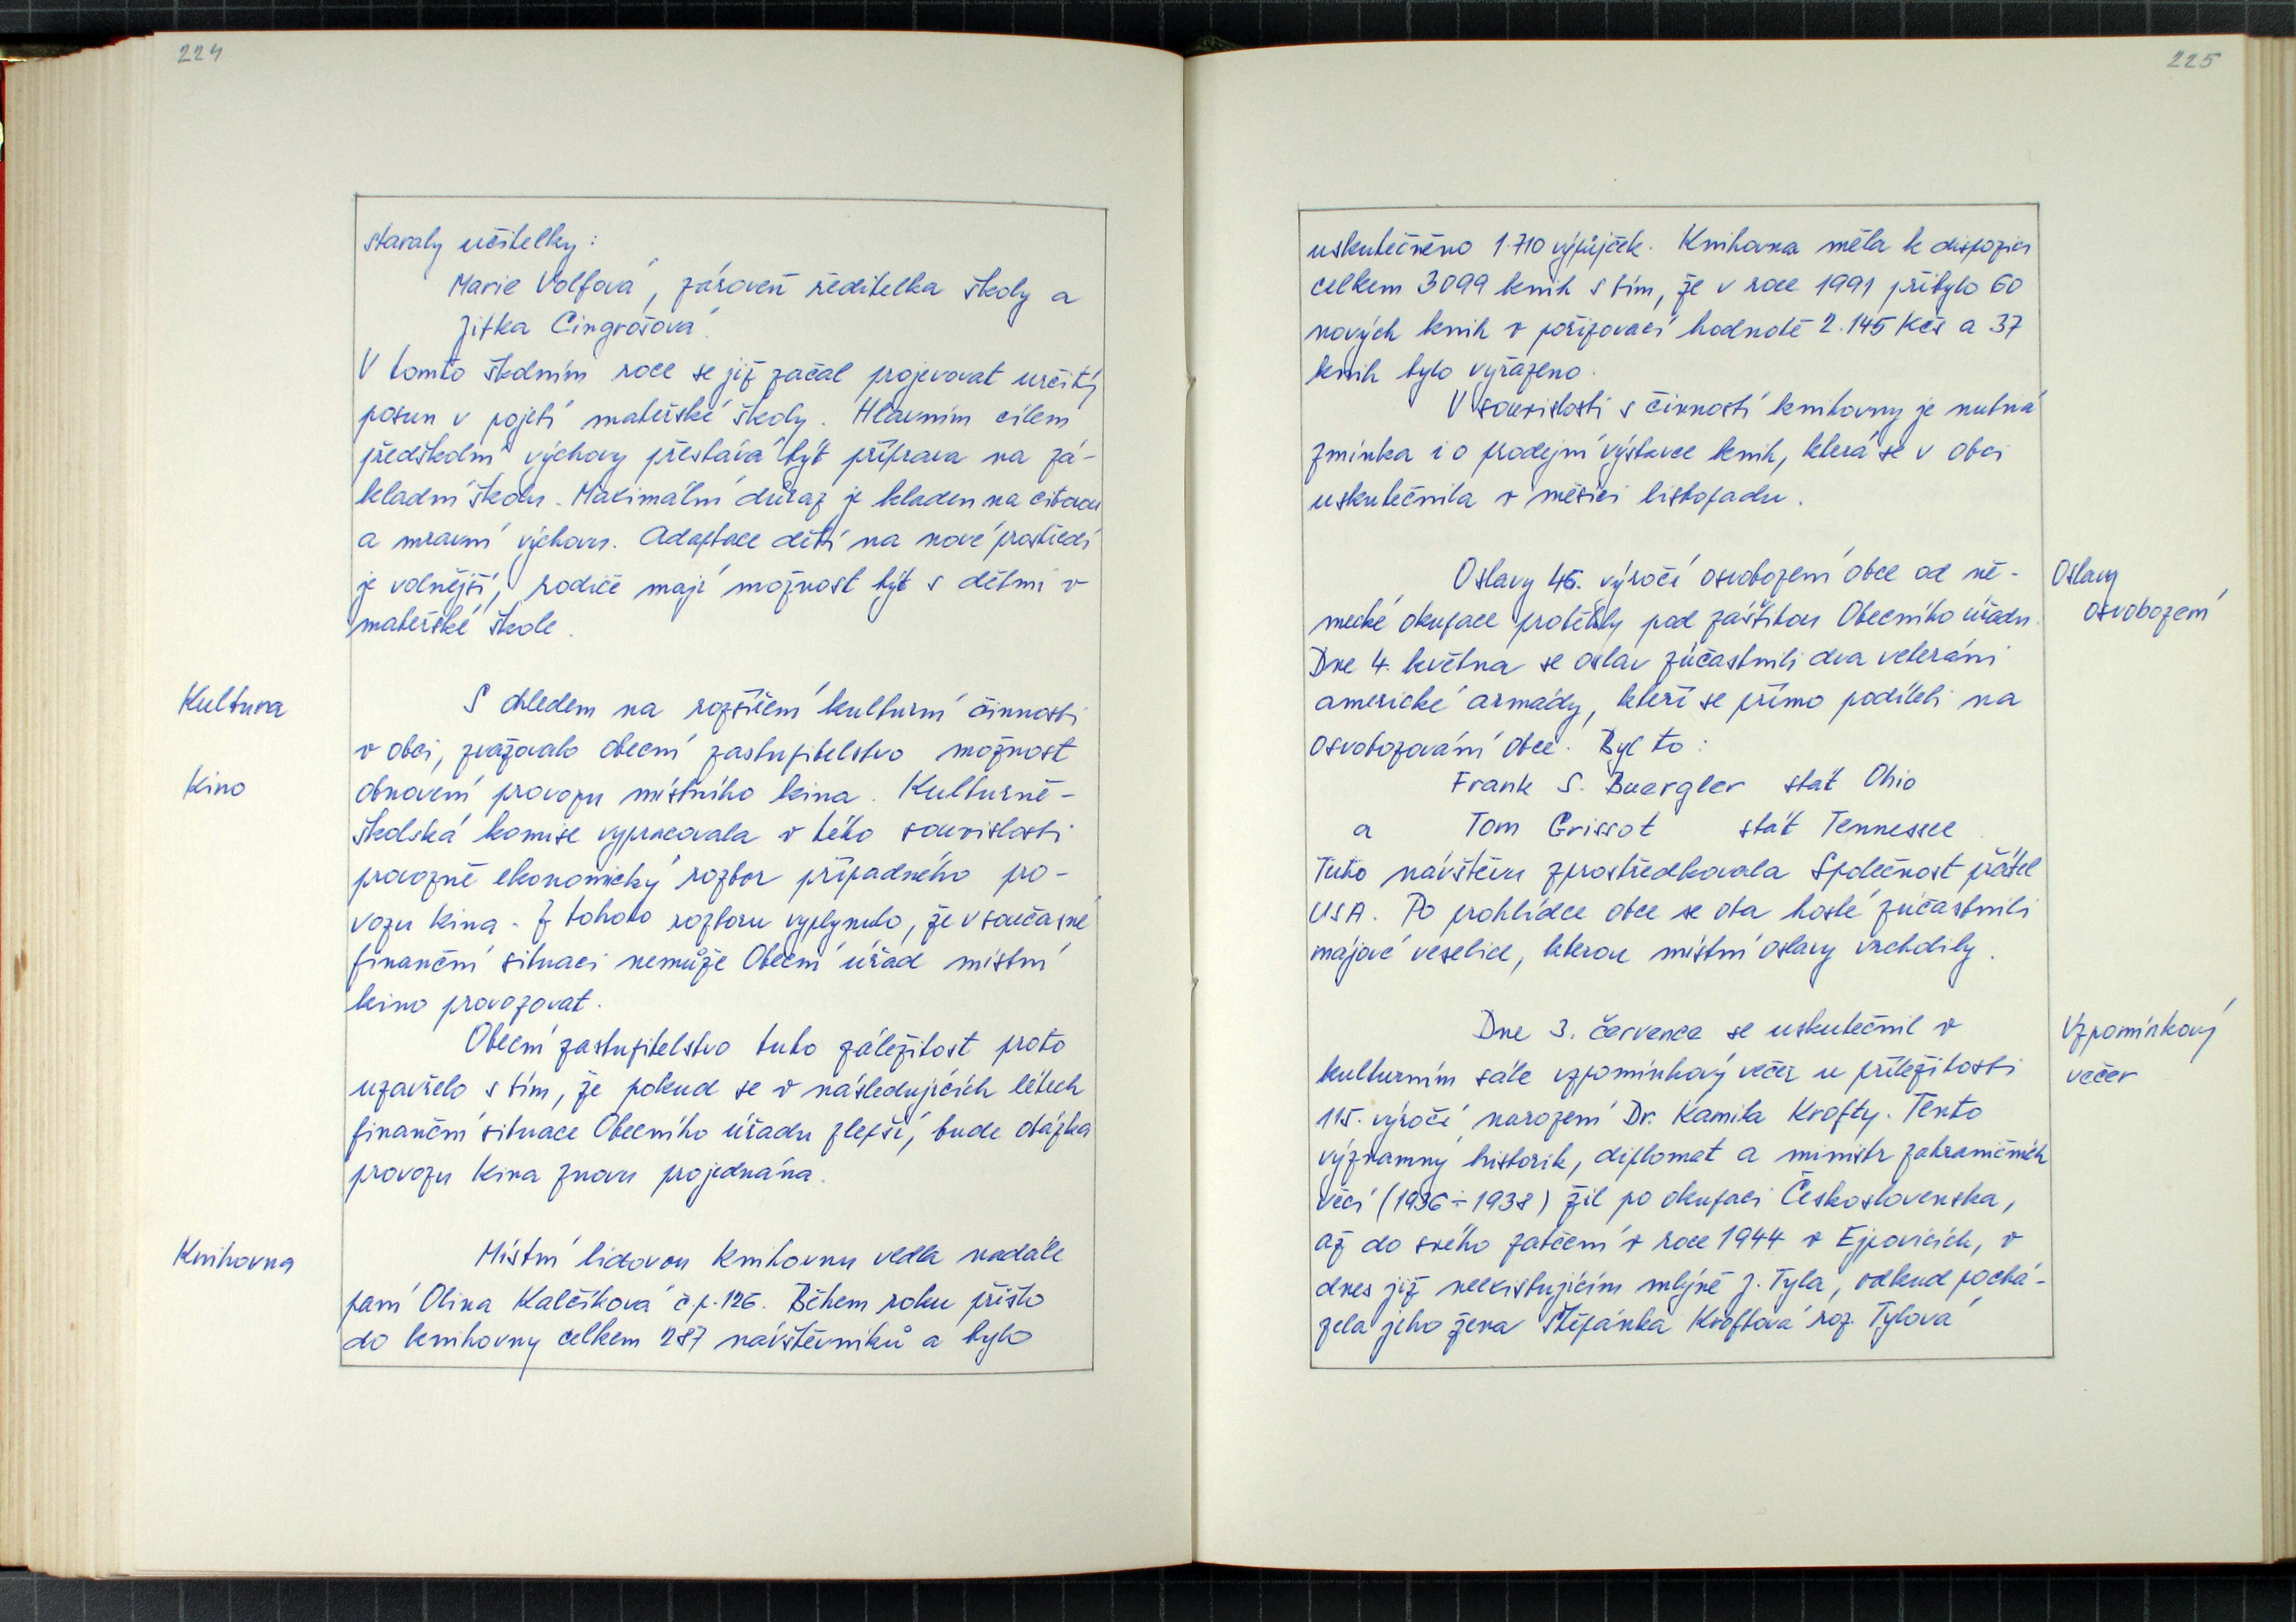 224
staraly učitelky:
Marie Volfová, zároveň ředitelka školy a
Jitka Cingrošová.
V tomto školním roce se již začal projevovat určitý
posun v pojetí mateřské školy. Hlavním cílem
předškolní výchovy přestává být příprava na zá-
kladní školu. Maximální důraz je kladen na citovou
a mravní výchovu. Adaptace dětí na nové prostředí
je volnější, rodiče mají možnost být s dětmi v
mateřské škole.
Kultura
S ohledem na rozšíření kulturní činnosti
v obci, zvažovalo obecní zastupitelstvo možnost
Kino
obnovení provozu místního kina. Kulturně-
školská komise vypracovala v této souvislosti
provozně ekonomický rozbor případného pro-
vozu kina. Z tohoto rozboru vyplynulo, že v současné
finanční situaci nemůže Obecní úřad místní
kino provozovat.
Obecní zastupitelstvo tuto záležitost proto
uzavřelo s tím, že pokud se v následujících létech
finanční situace Obecního úřadu zlepší, bude otázka
provozu kina znovu projednána.
Knihovna
Místní lidovou knihovnu vedla nadále
paní Olina Kalčíková č.p. 126. Během roku přišlo
do knihovny celkem 287 návštěvníků a bylo
225
uskutečněno 1.710 výpůjček. Knihovna měla k dispozici
celkem 3099 knih s tím, že v roce 1991 přibylo 60
nových knih v pořizovací hodnotě 2.145 Kčs a 37
knih bylo vyřazeno.
V souvislosti s činností knihovny je nutná
zmínka i o prodejní výstavce knih, která se v obci
uskutečnila v měsíci listopadu.
Oslavy 46. výročí osvobození obce od ně-
Oslavy
osvobození
mecké okupace proběhly pod záštitou Obecního úřadu.
Dne 4. května se oslav zúčastnili dva veteráni
americké armády, kteří se přímo podíleli na
osvobozování obce. Byl to:
Frank S. Buergler stát Ohio
a Tom Grissot stát Tennessee.
Tuto návštěvu zprostředkovala Společnost přátel
USA. Po prohlídce obce se oba hosté zúčastnili
májové veselice, kterou místní oslavy vrcholily.
Dne 3. července se uskutečnil v
Vzpomínkový
večer
kulturním sále vzpomínkový večer u příležitosti
115. výročí narození Dr. Kamila Krofty. Tento
významný historik, diplomat a ministr zahraničních
věcí (1936÷1938) žil po okupaci Československa,
až do svého zatčení v roce 1944 v Ejpovicích, v
dnes již neexistujícím mlýně J. Tyla, odkud pochá-
zela jeho žena Štěpánka Kroftová roz. Tylová